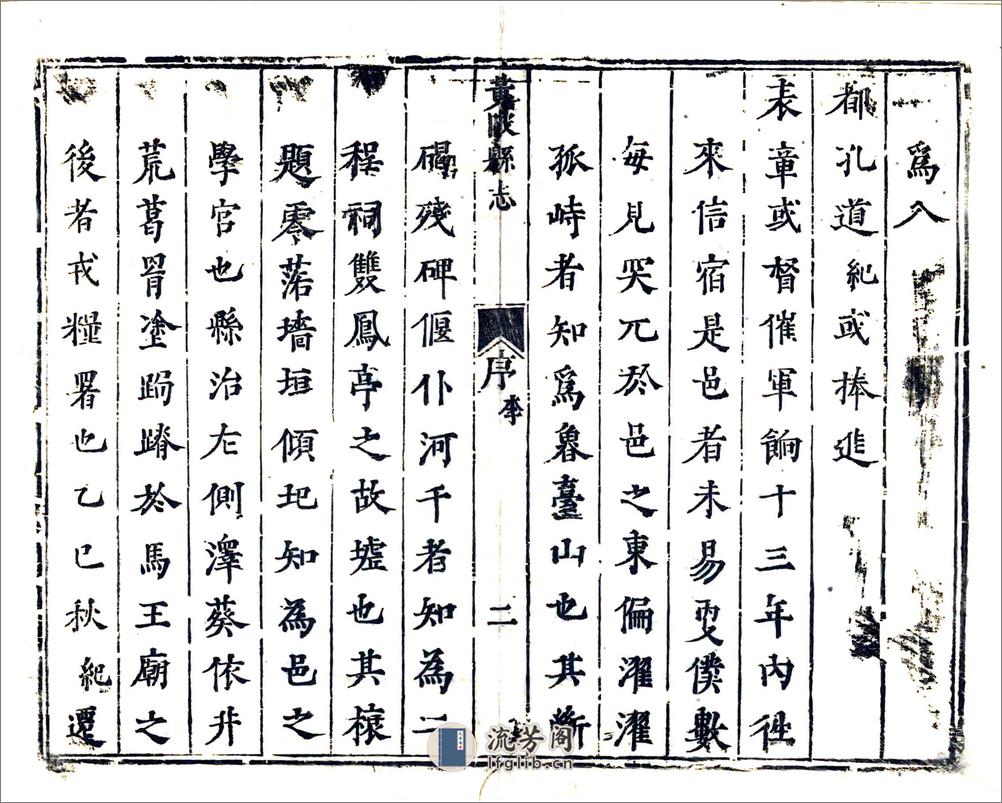 爲入
都孔道紀或捧進
表章或督催軍餉十三年內徃
來信宿是邑者未易更僕數
每見突兀於邑之東偏濯濯
孤峙者知爲魯臺山也其斷
黃陂縣志 序 李 二
碣殘碑偃仆河干者知為二
程祠雙鳳亭之故墟也其榱
題零落墻垣傾圯知為邑之
學宮也縣治左側澤葵依井
荒葛罥塗跼蹐於馬王廟之
後者戎糧署也乙巳秋紀遷
流芳阁
lfglib.cn